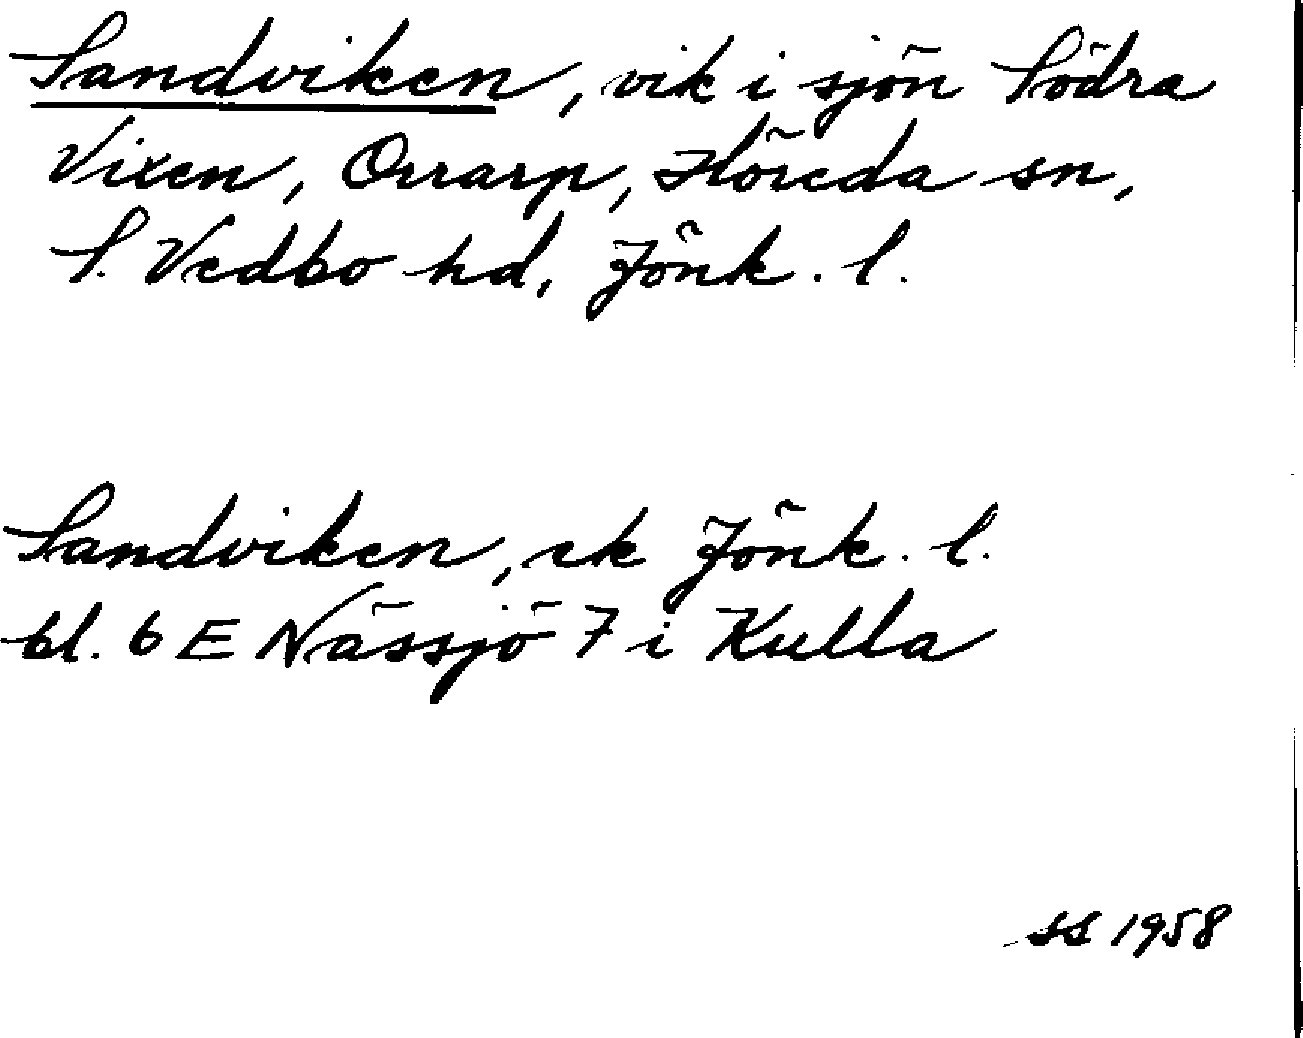 Sandviken, vik i sjön Södra
Vixen, Orrarp, Höreda sn,
S. Vedbo hd, Jönk. l.
Sandviken, ek Jönk. l.
bl. 6 E Nässjö 7 i Kulla
SS 1958